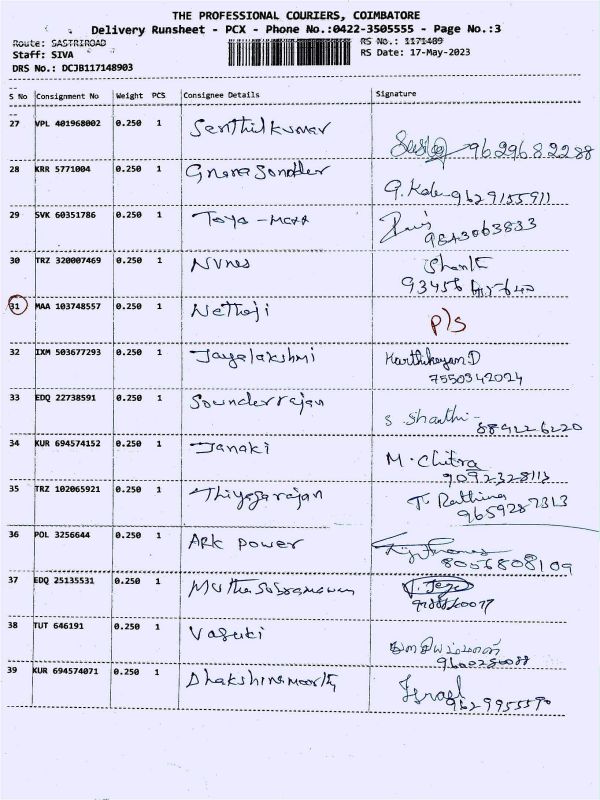 THE PROFESSIONAL COURIERS, COIMBATORE
Delivery Runsheet - PCX - Phone No.:0422-3505555 - Page No.:3
Route: SASTRIROAD RS No.: 1171489
Staff: SIVA RS Date: 17-May-2023
DRS No.: DCJB117148903
S No Consignment No Weight PCS Consignee Details Signature
27 VPL 401968002 0.250 1 Senthilkumar
9629682288
28 KRR 5771004 0.250 1
G. Kala 9629155911
29 SVK 60351786 0.250 1 Toyo -
9843063833
30 TRZ 320007469 0.250 1 Nvnes
93456
31 MAA 103748557 0.250 1 Nethaji P/s
32 IXM 503677293 0.250 1 Jayalakshmi Karthikeyan.D
7550342024
33 EDQ 22738591 0.250 1 Sounderrajan
S Shanthi - 8892226220
34 KUR 694574152 0.250 1 Janaki M. Chitra
9092328113
35 TRZ 102065921 0.250 1 Thiyagarajan T. Rathina
9659287313
36 POL 3256644 0.250 1 ARK Power
8056808109
37 EDQ 25135531 0.250 1
38 TUT 646191 0.250 1 Vasuki
39 KUR 694574071 0.250 1 Israel
9629955590